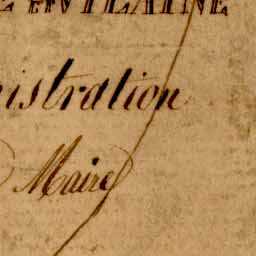 ET VILAINE
istration
Maire